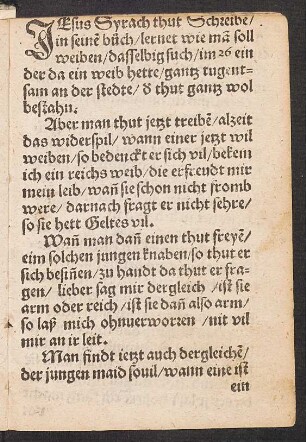 JEsus Syrach thut Schreibe/
in seinē bůch/ lernet wie mā soll
weiben/ dasselbig such/ im 26 ein
der da ein weib hette/ gantz tugent-
sam an der stedte/ d̄ thut gantz wol
bestahn.
Aber man thut jetzt treibē/ alzeit
das widerspil/ wann einer jetzt wil
weiben/ so bedenckt er sich vil/ bekem
ich ein reichs weib/ die erfreudt mir
mein leib/ wañ sie schon nicht fromb
were/ darnach fragt er nicht sehre/
so sie hett Geltes vil.
Wañ man dañ einen thut freyē/
eim solchen jungen knaben/ so thut er
sich besiñen/ zu handt da thut er fra-
gen/ lieber sag mir dergleich/ ist sie
arm oder reich/ ist sie dañ also arm/
so laß mich ohnuerworren/ nit vil
mir an ir leit.
Man findt ietzt auch dergleichē/
der jungen maid souil/ wann eine ist
ein